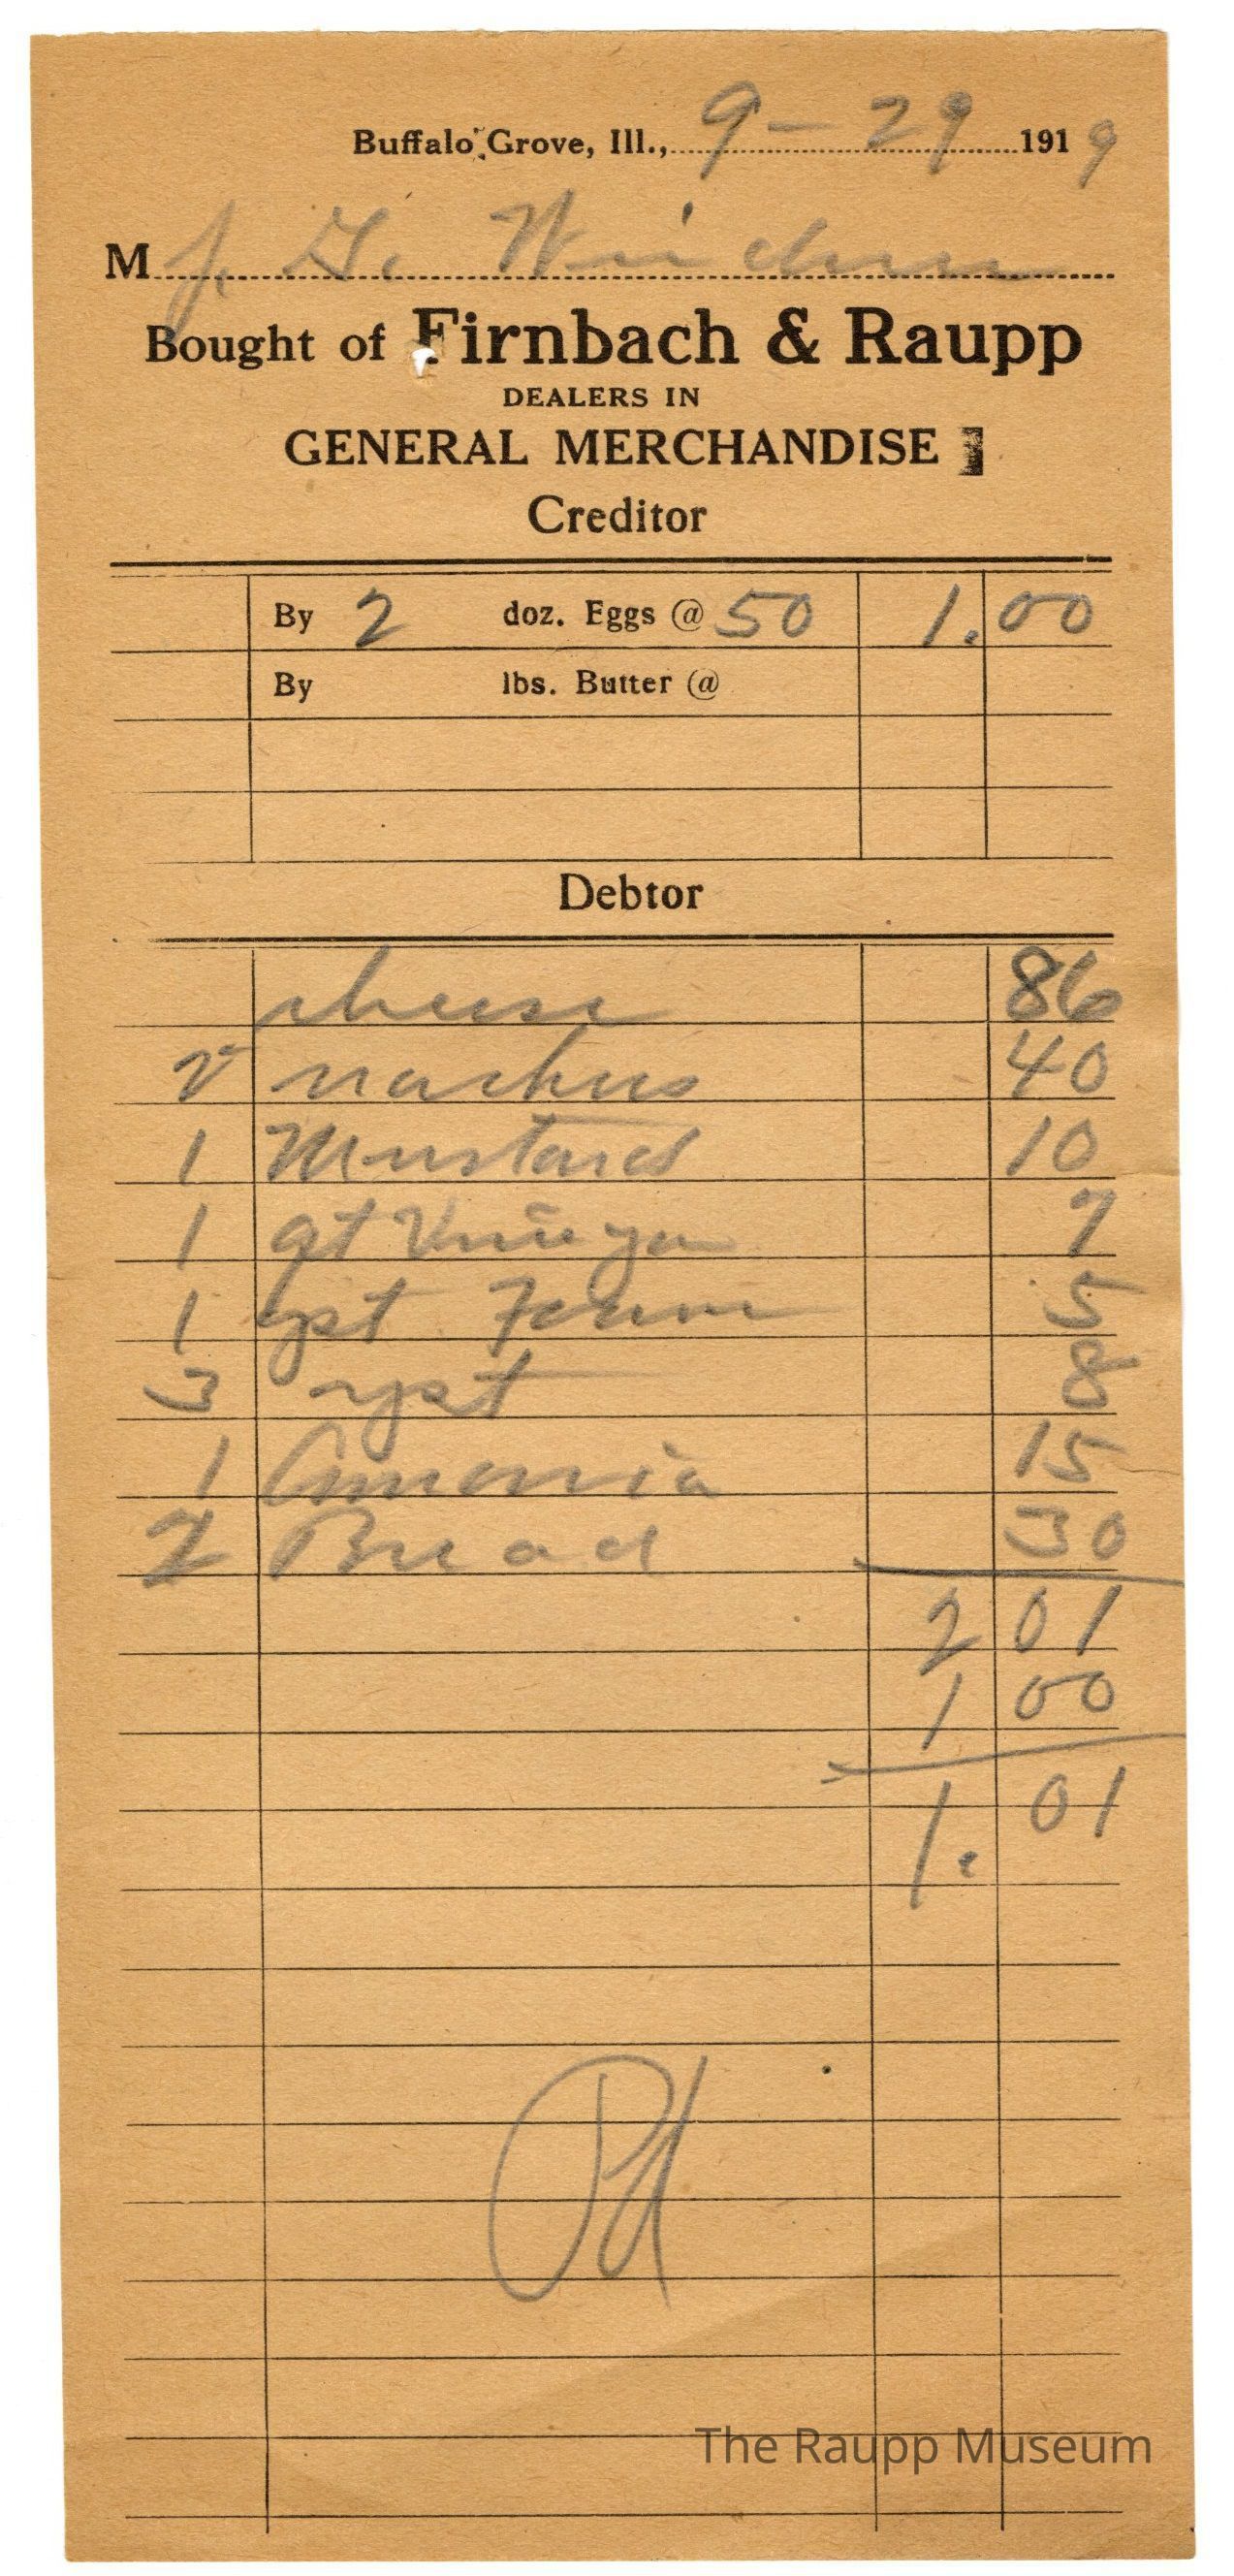 Buffalo Grove, Ill., 9-29 1919
M J. G. Weidner
Bought of Firnbach & Raupp
DEALERS IN
GENERAL MERCHANDISE
Creditor
By 2 doz. Eggs @ 50 1.00
By lbs. Butter @
Debtor
cheese 86
2 40
1 Mustard 10
1 qt 7
1 5
3 yst 8
1 Amonia 15
2 Bread 30
2 01
1 00
1. 01
Pd
The Raupp Museum